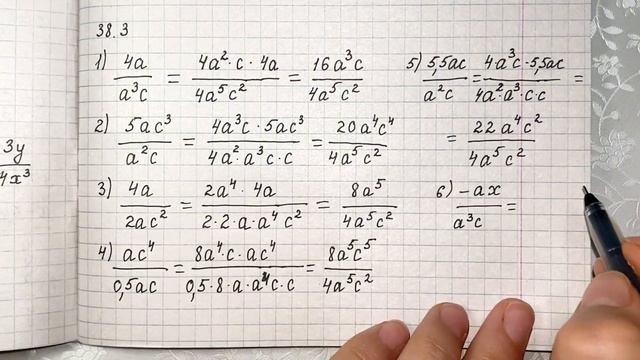 38.3
1) 4a/a³c = 4a²·c·4a/4a⁵c² = 16a³c/4a⁵c²
2) 5ac³/a²c = 4a³c·5ac³/4a²·a³c·c = 20a⁴c⁴/4a⁵c²
3) 4a/2ac² = 2a⁴·4a/2·2·a·a⁴c² = 8a⁵/4a⁵c²
4) ac⁴/0,5ac = 8a⁴·c·ac⁴/0,5·8·a·a⁴c·c = 8a⁵c⁵/4a⁵c²
5) 5,5ac/a²c = 4a³c·5,5ac/4a²·a³·c·c =
= 22a⁴c²/4a⁵c²
6) -ax/a³c =
3y/4x³